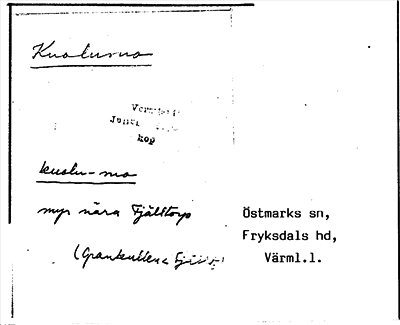 Kuolusuo
kop
kuolu-suo
myr nära Fjälltorp
(Grankullen
Östmarks sn,
Fryksdals hd,
Värml.l.